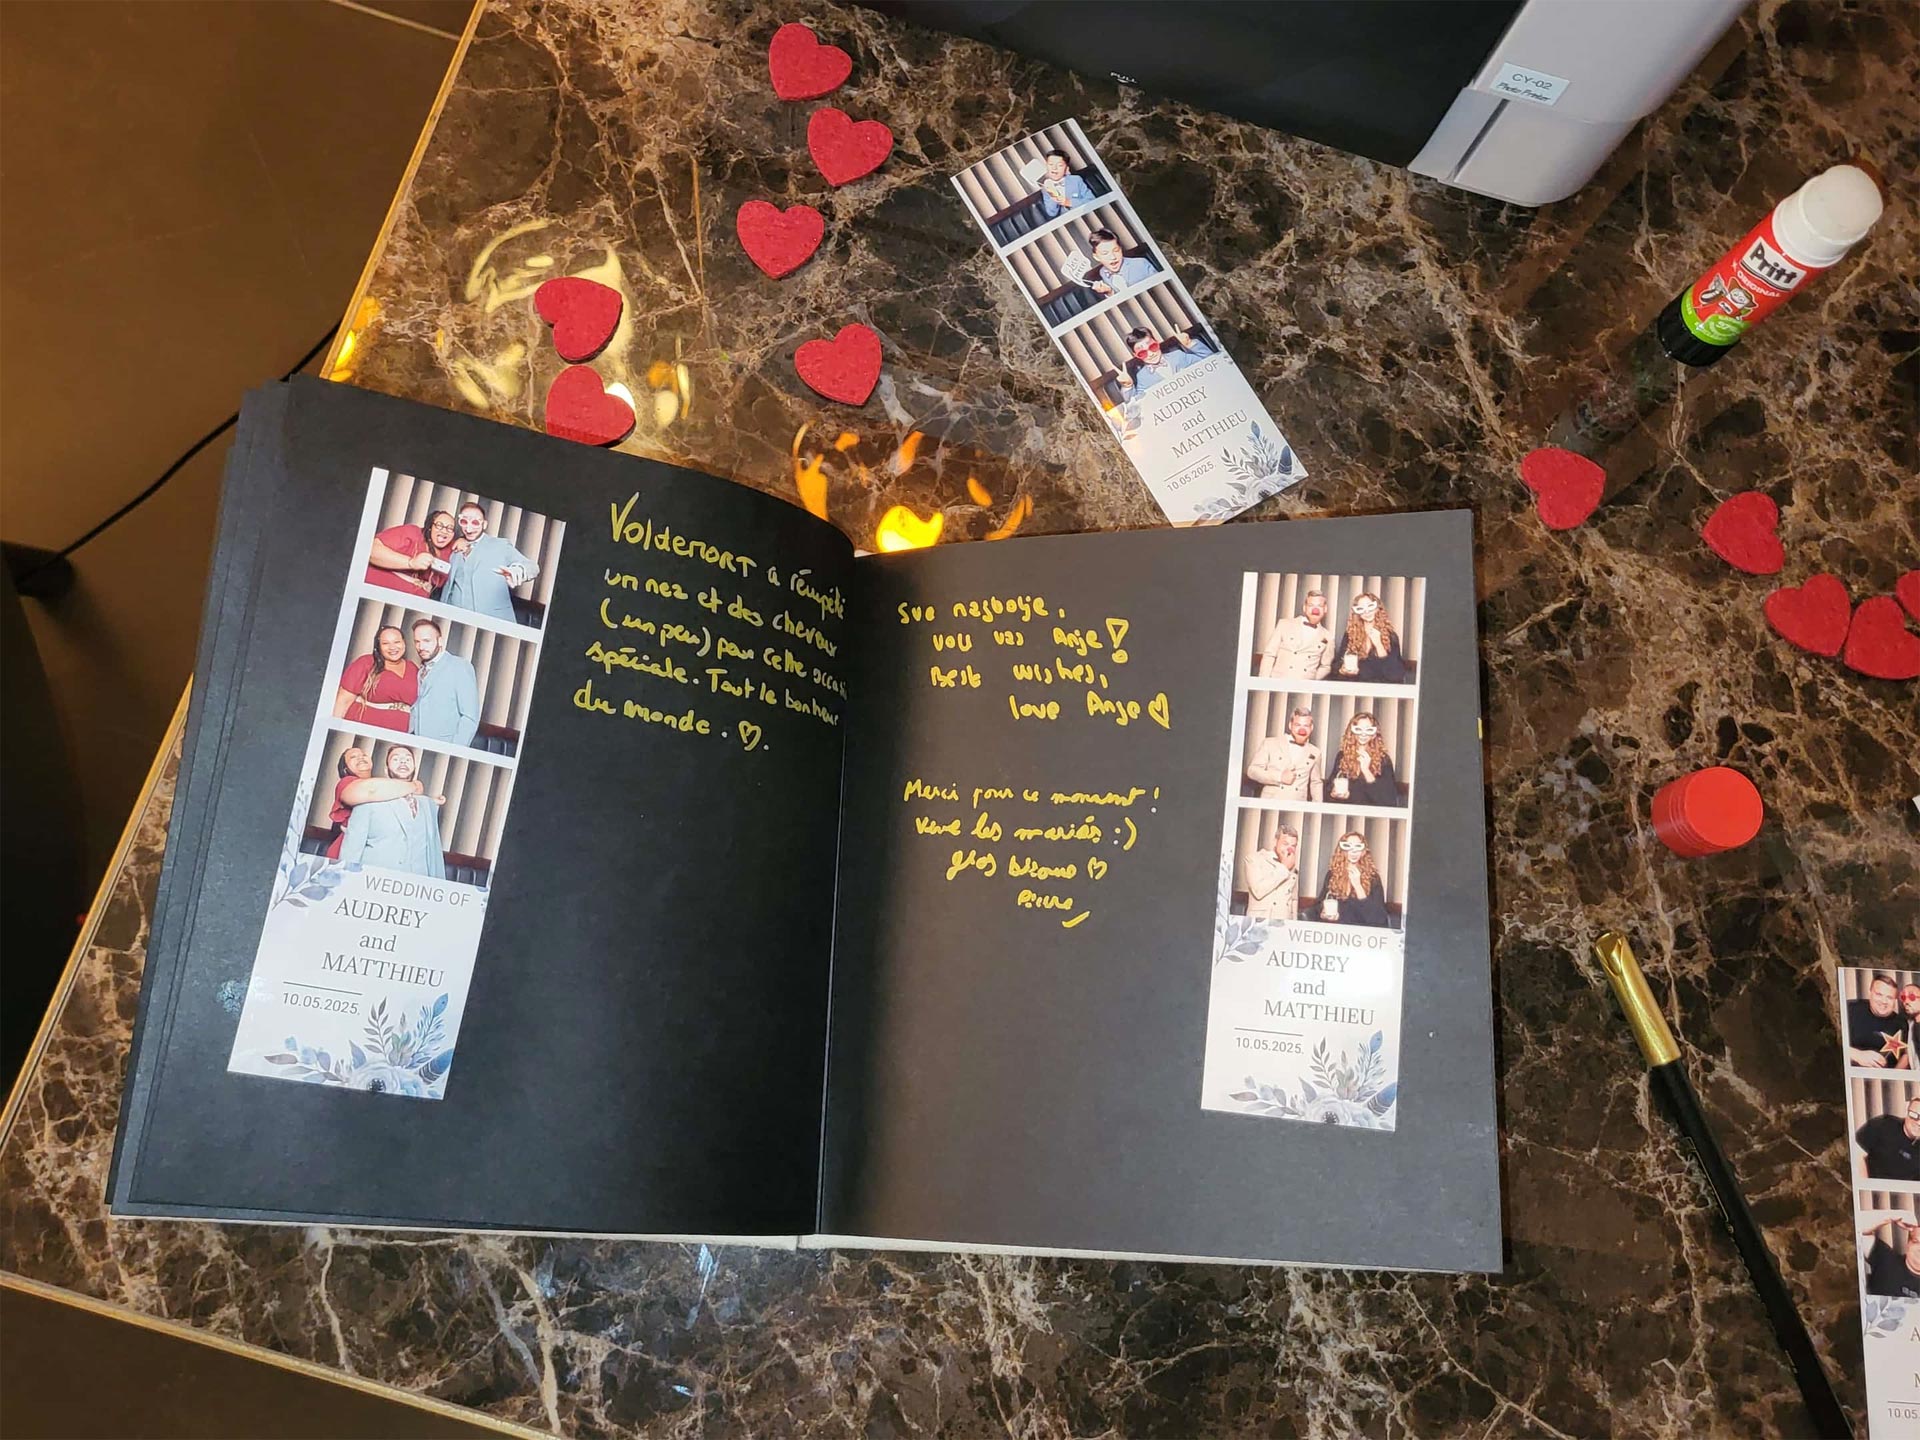 PULL
CY-02
Photo Printer
Pritt
ORIGINAL
WEDDING OF
AUDREY
and
MATTHIEU
10.05.2025.
Voldemort a récupéré
un nez et des cheveux
(un peu) pour cette occasi
spéciale. Tout le bonheur
du monde. ♡.
WEDDING OF
AUDREY
and
MATTHIEU
10.05.2025.
Sve najbolje,
voli vas Anje!
Best wishes,
love Anje ♡
Merci pour ce moment !
Vive les mariés :)
gros bisous ♡
Pierre
WEDDING OF
AUDREY
and
MATTHIEU
10.05.2025.
10.05